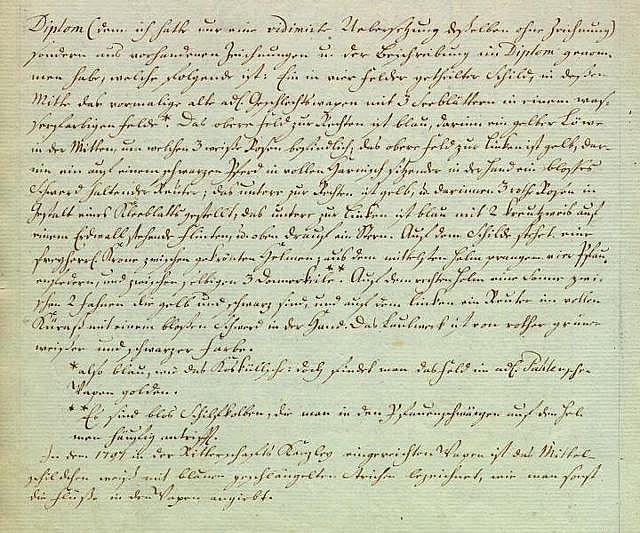 Diplom (denn ich hatte nur eine vidimirte Uebersetzung deßelben ohne Zeichnung)
sondern aus vorhandenen Zeichnungen u. der Beschreibung im Diplom genom-
men habe, welche folgende ist: Ein in vier Felder getheilter Schild, in deßen
Mitte das vormalige alte adl. Geschlechtswapen mit 3 Seeblättern in einem was-
serfarbigen Felde*. Das obere Feld zur Rechten ist blau, darinn ein gelber Löwe
in der Mitten, um welchen 3 weiße Rosen befindlich, das obere Feld zur Linken ist gelb, dar-
inn ein auf einem schwarzen Pferd in vollem Harnisch sitzender in der Hand ein bloßes
Schwerd haltender Reuter; das untere zur Rechten ist gelb, u. darinnen 3 rothe Rosen in
Gestalt eines Kleeblatts gestellt; das untere zur Linken ist blau mit 2 kreutzweis auf
einem Erdwall stehende Flinten, u. oben drauf ein Stern. Auf dem Schilde stehet eine
freyherrl. Krone zwischen gekrönten Helmen; aus dem mittelsten Helm prangen vier Pfau
enfedern, und zwischen selbigen 3 Donnerkeile**. Auf dem rechten Helm eine Sonne zwi-
schen 2 Fahnen die gelb und schwarz sind, und auf dem linken ein Reuter im vollen
Küraß mit einem bloßen Schwerd in der Hand. Das Laubwerk ist von rother grüner
weißer und schwarzer Farbe.
* also blau, wie das Kosküllsche: doch findet man das Feld im adl. Patkulschen
Wapen golden.
** Es sind blos Schilfkolben, die man in den Pfauenschwänzen auf den Hel-
men häufig antrifft.
In dem 1797 in der Ritterschafts Kanzley eingereichten Wapen ist das Mittel-
schildchen weiß mit blauen geschlängelten Strichen bezeichnet, wie man sonst
die Flüße in den Wapen angiebt.